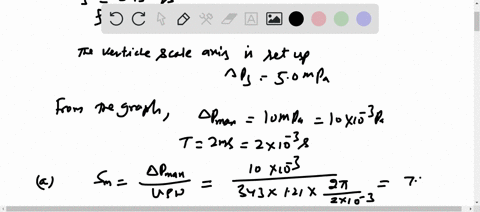 The verticle scale axis is set up
ΔPs = 5.0 mPa
From the graph, ΔPmax = 10 mPa = 10 × 10⁻³ Pa
T = 2ms = 2 × 10⁻³ s
(a) Sm = ΔPmax / υρω = 10 × 10⁻³ / 343 × 1.21 × 2π / 2 × 10⁻³ = 7.